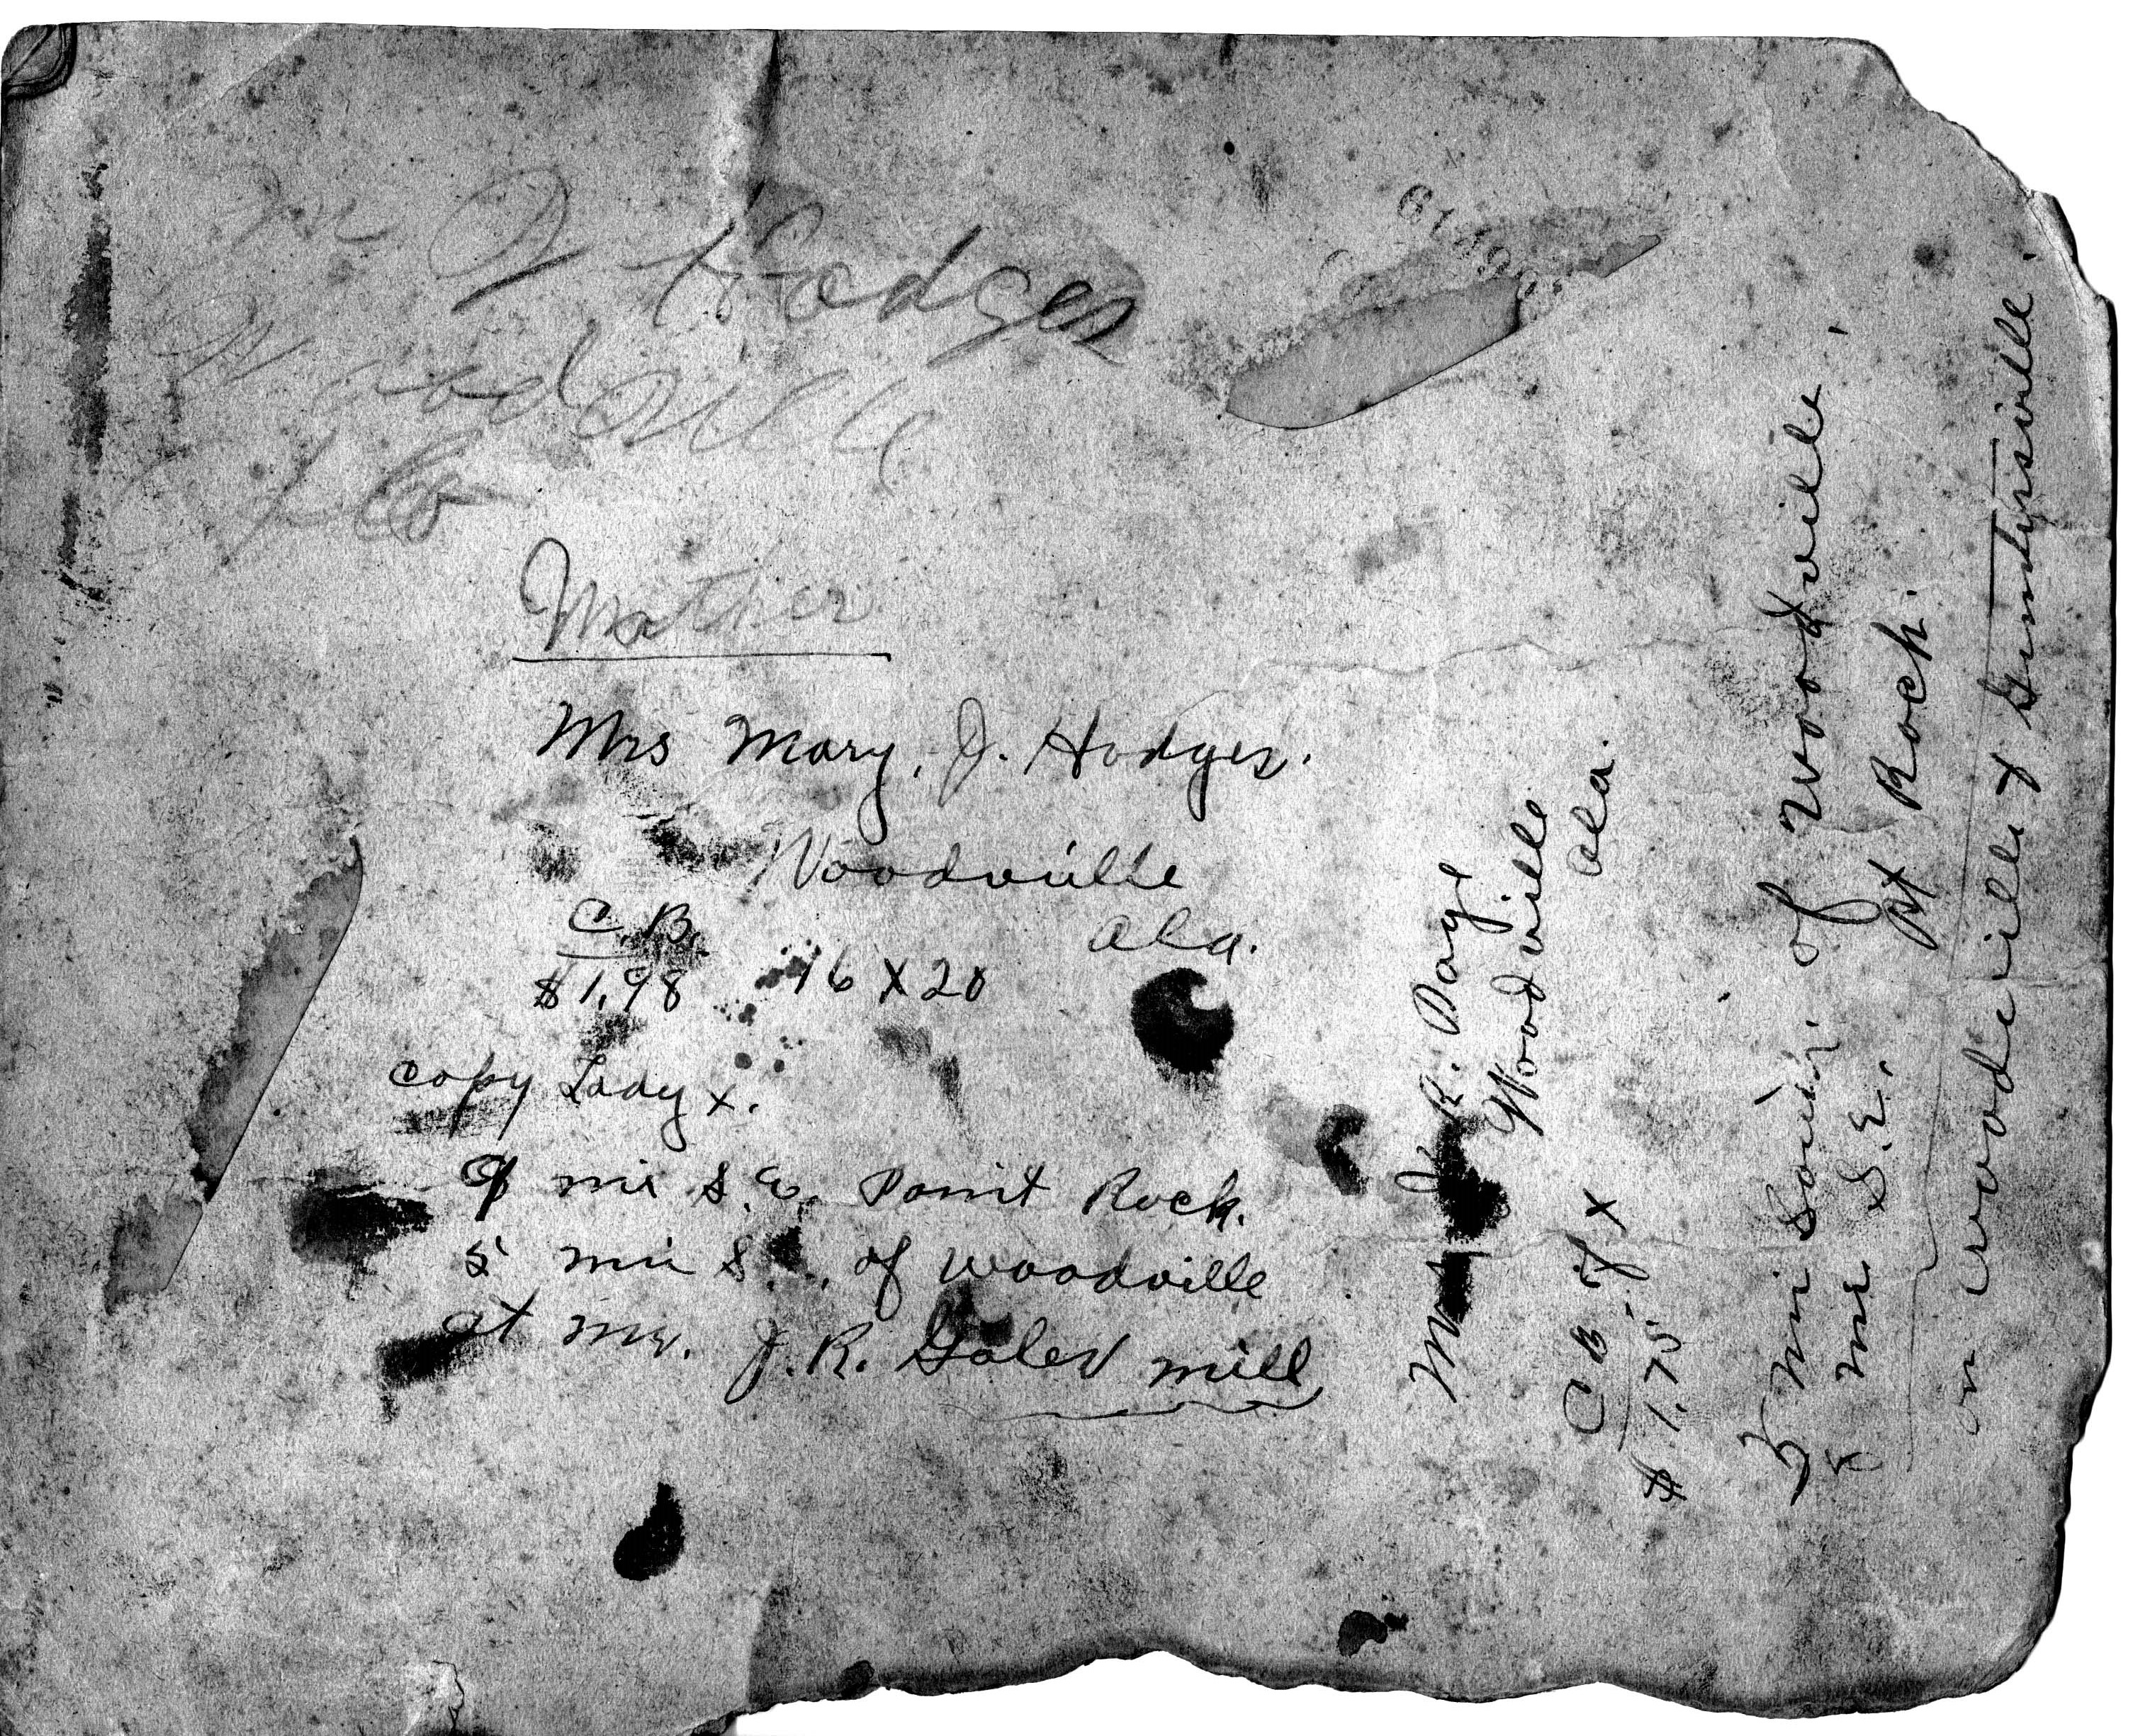 Hodges
Woodville
Mother
Mrs Mary, J. Hodges.
Woodville
Ala.
C.B.
$1.98 16 x 20
copy Lady x.
9 mi S.E. Paint Rock.
5 mi S. of Woodville
at mr. J.R. mill
J. R. Page
Woodville
Ala.
C B x
$1.75
5 mi South, of Woodville,
8 mi S.E. Pt Rock.
on Woodville & Guntersville.